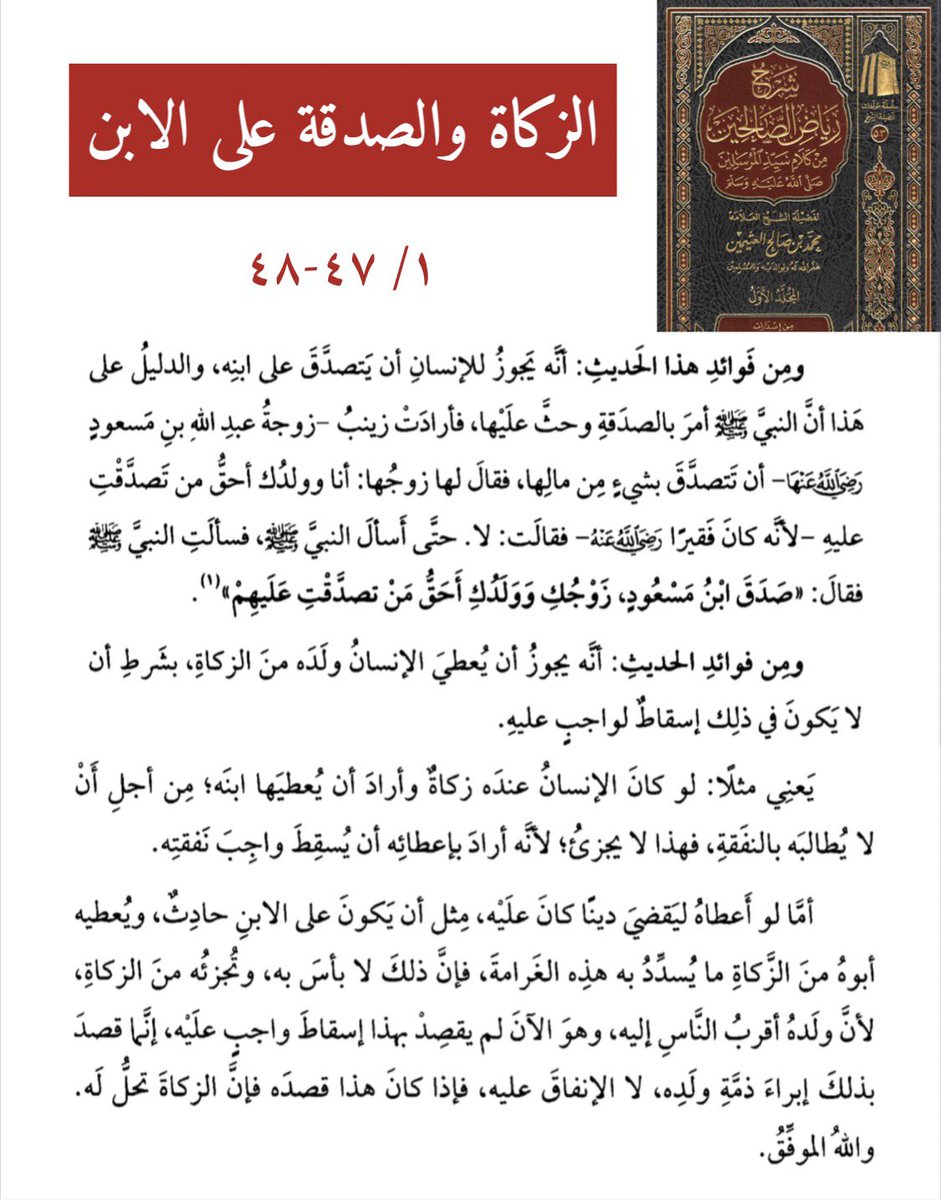 الزكاة والصدقة على الابن
١/ ٤٧-٤٨
شرح
رياض الصالحين
من كلام سيد المرسلين
صلى الله عليه وسلم
لفضيلة الشيخ العلامة
محمد بن صالح العثيمين
غفر الله له ولوالديه وللمسلمين
المجلد الأول
من إصدارات
ومِن فَوائدِ هذا الحَديثِ: أنَّه يَجوزُ للإنسانِ أن يَتصدَّقَ على ابنِه، والدليلُ على
هَذا أنَّ النبيَّ ﷺ أمرَ بالصدَقةِ وحثَّ علَيْها، فأرادَتْ زينبُ -زوجةُ عبدِ اللهِ بنِ مَسعودٍ
رَضِيَاللَّهُعَنْهَا- أن تَتصدَّقَ بشيءٍ مِن مالِها، فقالَ لها زوجُها: أنا وولدُك أحقُّ من تَصدَّقْتِ
عليهِ -لأنَّه كانَ فَقيرًا رَضِيَاللَّهُعَنْهُ- فقالَت: لا. حتَّى أَسألَ النبيَّ ﷺ، فسألَتِ النبيَّ ﷺ
فقالَ: «صَدَقَ ابْنُ مَسْعُودٍ، زَوْجُكِ وَوَلَدُكِ أَحَقُّ مَنْ تصدَّقْتِ عَلَيهِمْ»(١).
ومِن فوائدِ الحديثِ: أنَّه يجوزُ أن يُعطيَ الإنسانُ ولَدَه منَ الزكاةِ، بشَرطِ أن
لا يَكونَ في ذلِك إسقاطٌ لواجبٍ عليهِ.
يَعنِي مثلًا: لو كانَ الإنسانُ عندَه زكاةٌ وأرادَ أن يُعطيَها ابنَه؛ مِن أجلِ أَنْ
لا يُطالبَه بالنفَقةِ، فهذا لا يجزئُ؛ لأنَّه أرادَ بإعطائِه أن يُسقِطَ واجِبَ نَفقتِه.
أمَّا لو أَعطاهُ ليَقضيَ دينًا كانَ علَيْه، مِثل أن يَكونَ على الابنِ حادِثٌ، ويُعطيه
أبوهُ منَ الزَّكاةِ ما يُسدِّدُ به هذِه الغَرامةَ، فإنَّ ذلكَ لا بأسَ به، وتُجزئُه منَ الزكاةِ،
لأنَّ ولَدهُ أقربُ النَّاسِ إليه، وهوَ الآنَ لم يقصِدْ بهذا إسقاطَ واجبٍ علَيْه، إنَّما قصدَ
بذلكَ إبراءَ ذمَّةِ ولَدِه، لا الإنفاقَ عليه، فإذا كانَ هذا قصدَه فإنَّ الزكاةَ تحلُّ لَه.
واللهُ الموفِّقُ.